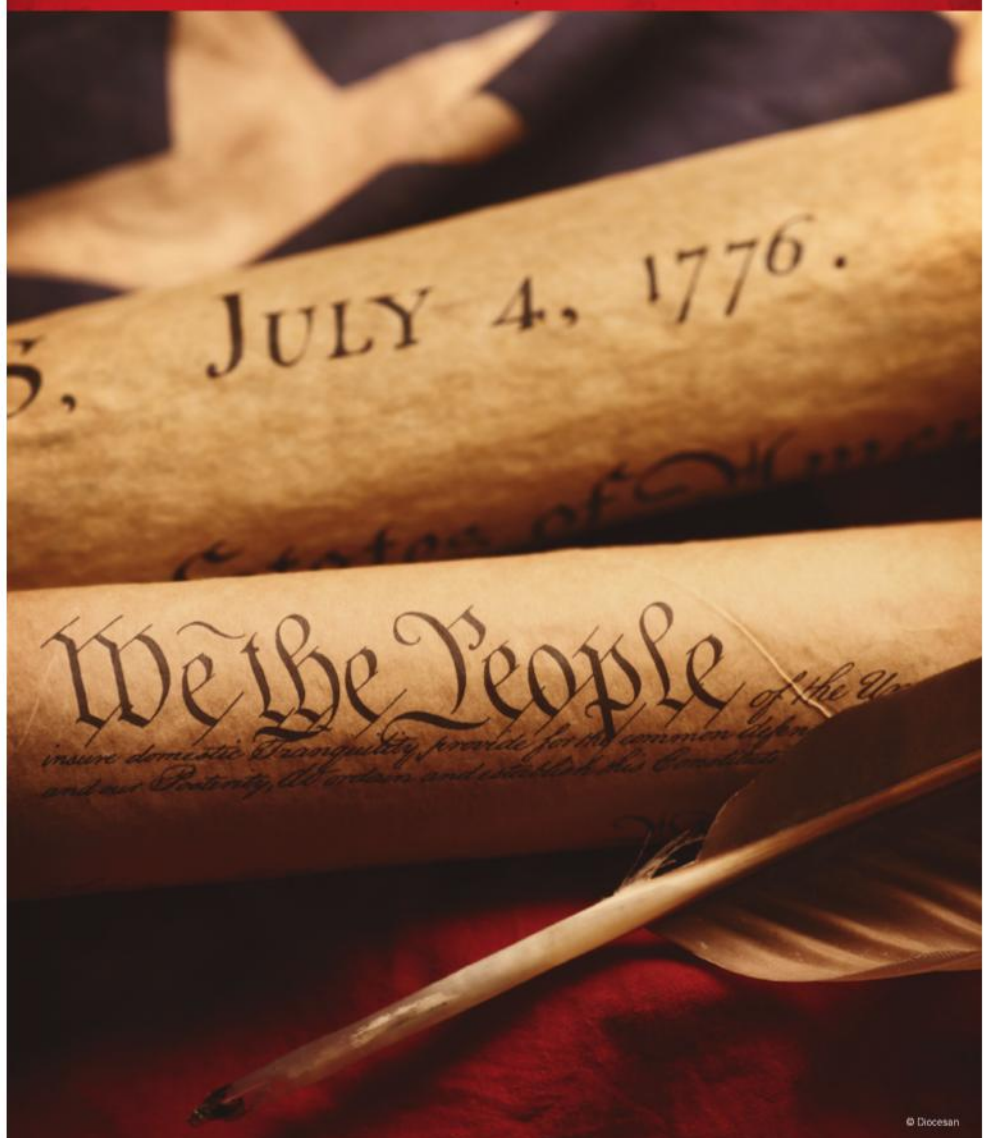 S, JULY 4, 1776.
States of Amer
We the People of the Un
insure domestic Tranquility, provide for the common defen
and our Posterity, do ordain and establish this Constitut
© Diocesan